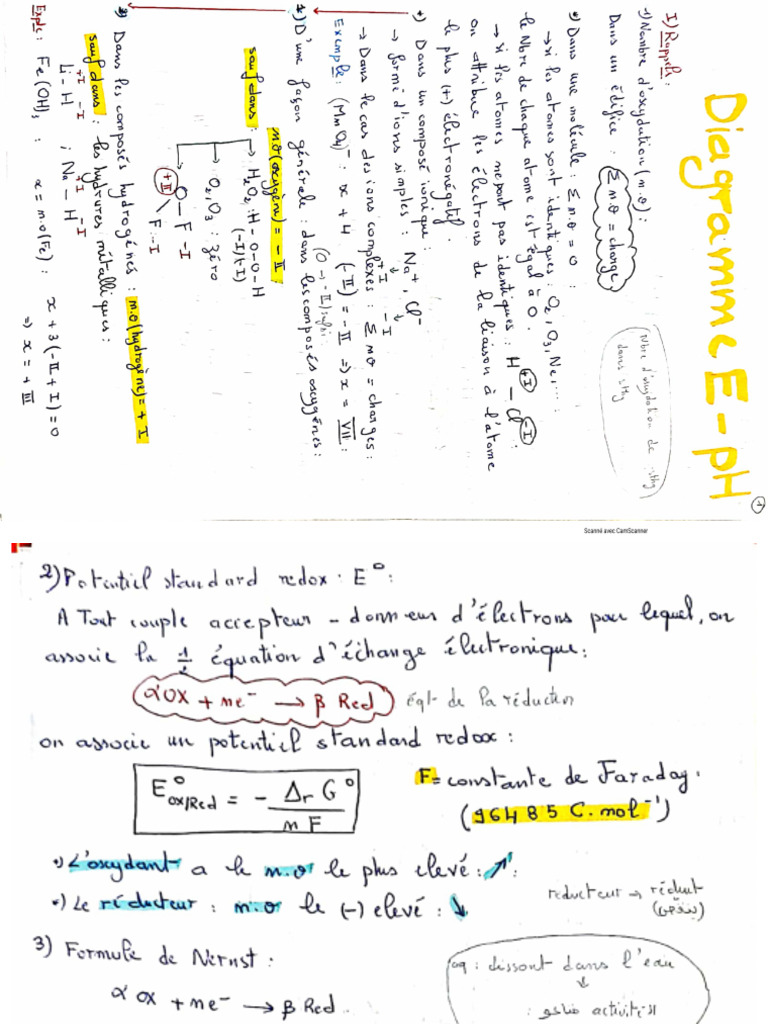 Diagramme E-pH
1
I) Rappels:
1) Nombre d'oxydation (n.o):
Dans un édifice : Σ n.o = charge
(Nbre d'oxydation de sthg
dans sthg
•) Dans une molécule : Σ n.o = 0 :
→ si les atomes sont identiques : O₂, O₃, Ne, ...:
le Nbre de chaque atome est égal à 0.
→ si les atomes ne sont pas identiques : H - Cl :
+I -I
on attribue les électrons de la liaison à l'atome
le plus (+) électronégatif.
•) Dans un composé ionique :
→ formé d'ions simples : Na⁺, Cl⁻
+I -I
→ Dans le cas des ions complexes : Σ n.o = charges :
Exemple : (MnO₄)⁻ : x + 4 (-II) = -I ⇒ x = VII :
2) D'une façon générale : dans les composés oxygénés :
n.o (oxygène) = -II :
sauf dans :
→ H₂O₂ : H - O - O - H
(-I)(-I)
→ O₂, O₃ : zéro
O - F -I
+II
F -I
3) Dans les composés hydrogénés : n.o (hydrogène) = + I
sauf dans : les hydrures métalliques :
+I -I +I -I
Li - H ; Na - H
Exple : Fe(OH)₃ : x = n.o (Fe) : x + 3 (-II + I) = 0
⇒ x = + III
Scanné avec CamScanner
2) Potentiel standard redox : E° :
A Tout couple accepteur - donneur d'électrons pour lequel, on
associe la 1/2 équation d'échange électronique :
α OX + ne⁻ → β Red éqt de la réduction
on associe un potentiel standard redox :
E°ox/Red = - ΔrG° / nF
F = constante de Faraday.
(96485 C.mol⁻¹)
•) L'oxydant a le n.o le plus élevé : ↗ :
•) Le réducteur : n.o le (-) élevé : ↘
reducteur → réduit
(ينقص)
3) Formule de Nernst :
α OX + ne⁻ → β Red.
aq : dissout dans l'eau
↓
activités